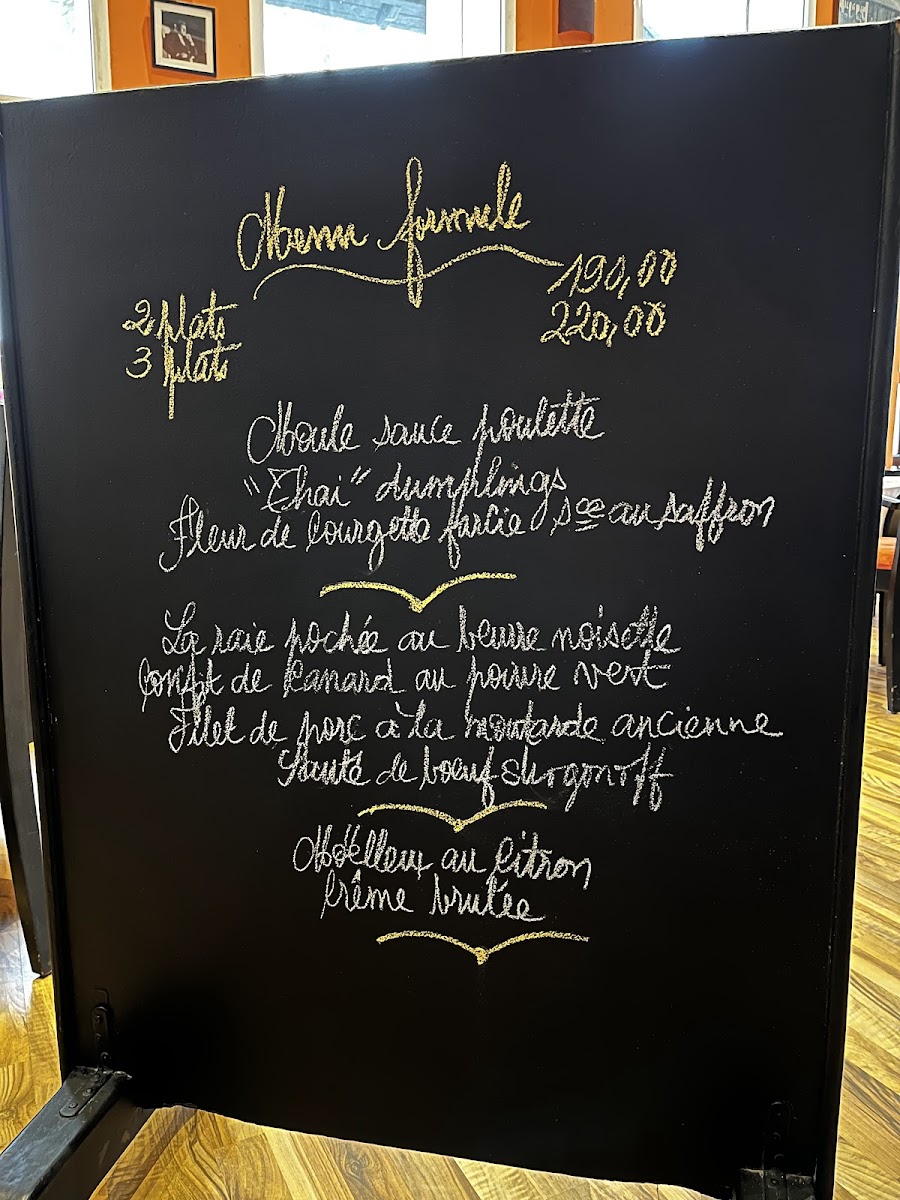 Menu formule
2 plats 190,00
3 plats 220,00
Moule sauce poulette
"Thai" dumplings
Fleur de Courgette farcie sce au saffron
La raie pochée au beurre noisette
Confit de Canard au poivre vert
Filet de porc à la moutarde ancienne
Sauté de bœuf strogonoff
Moëlleux au Citron
Crême brulée